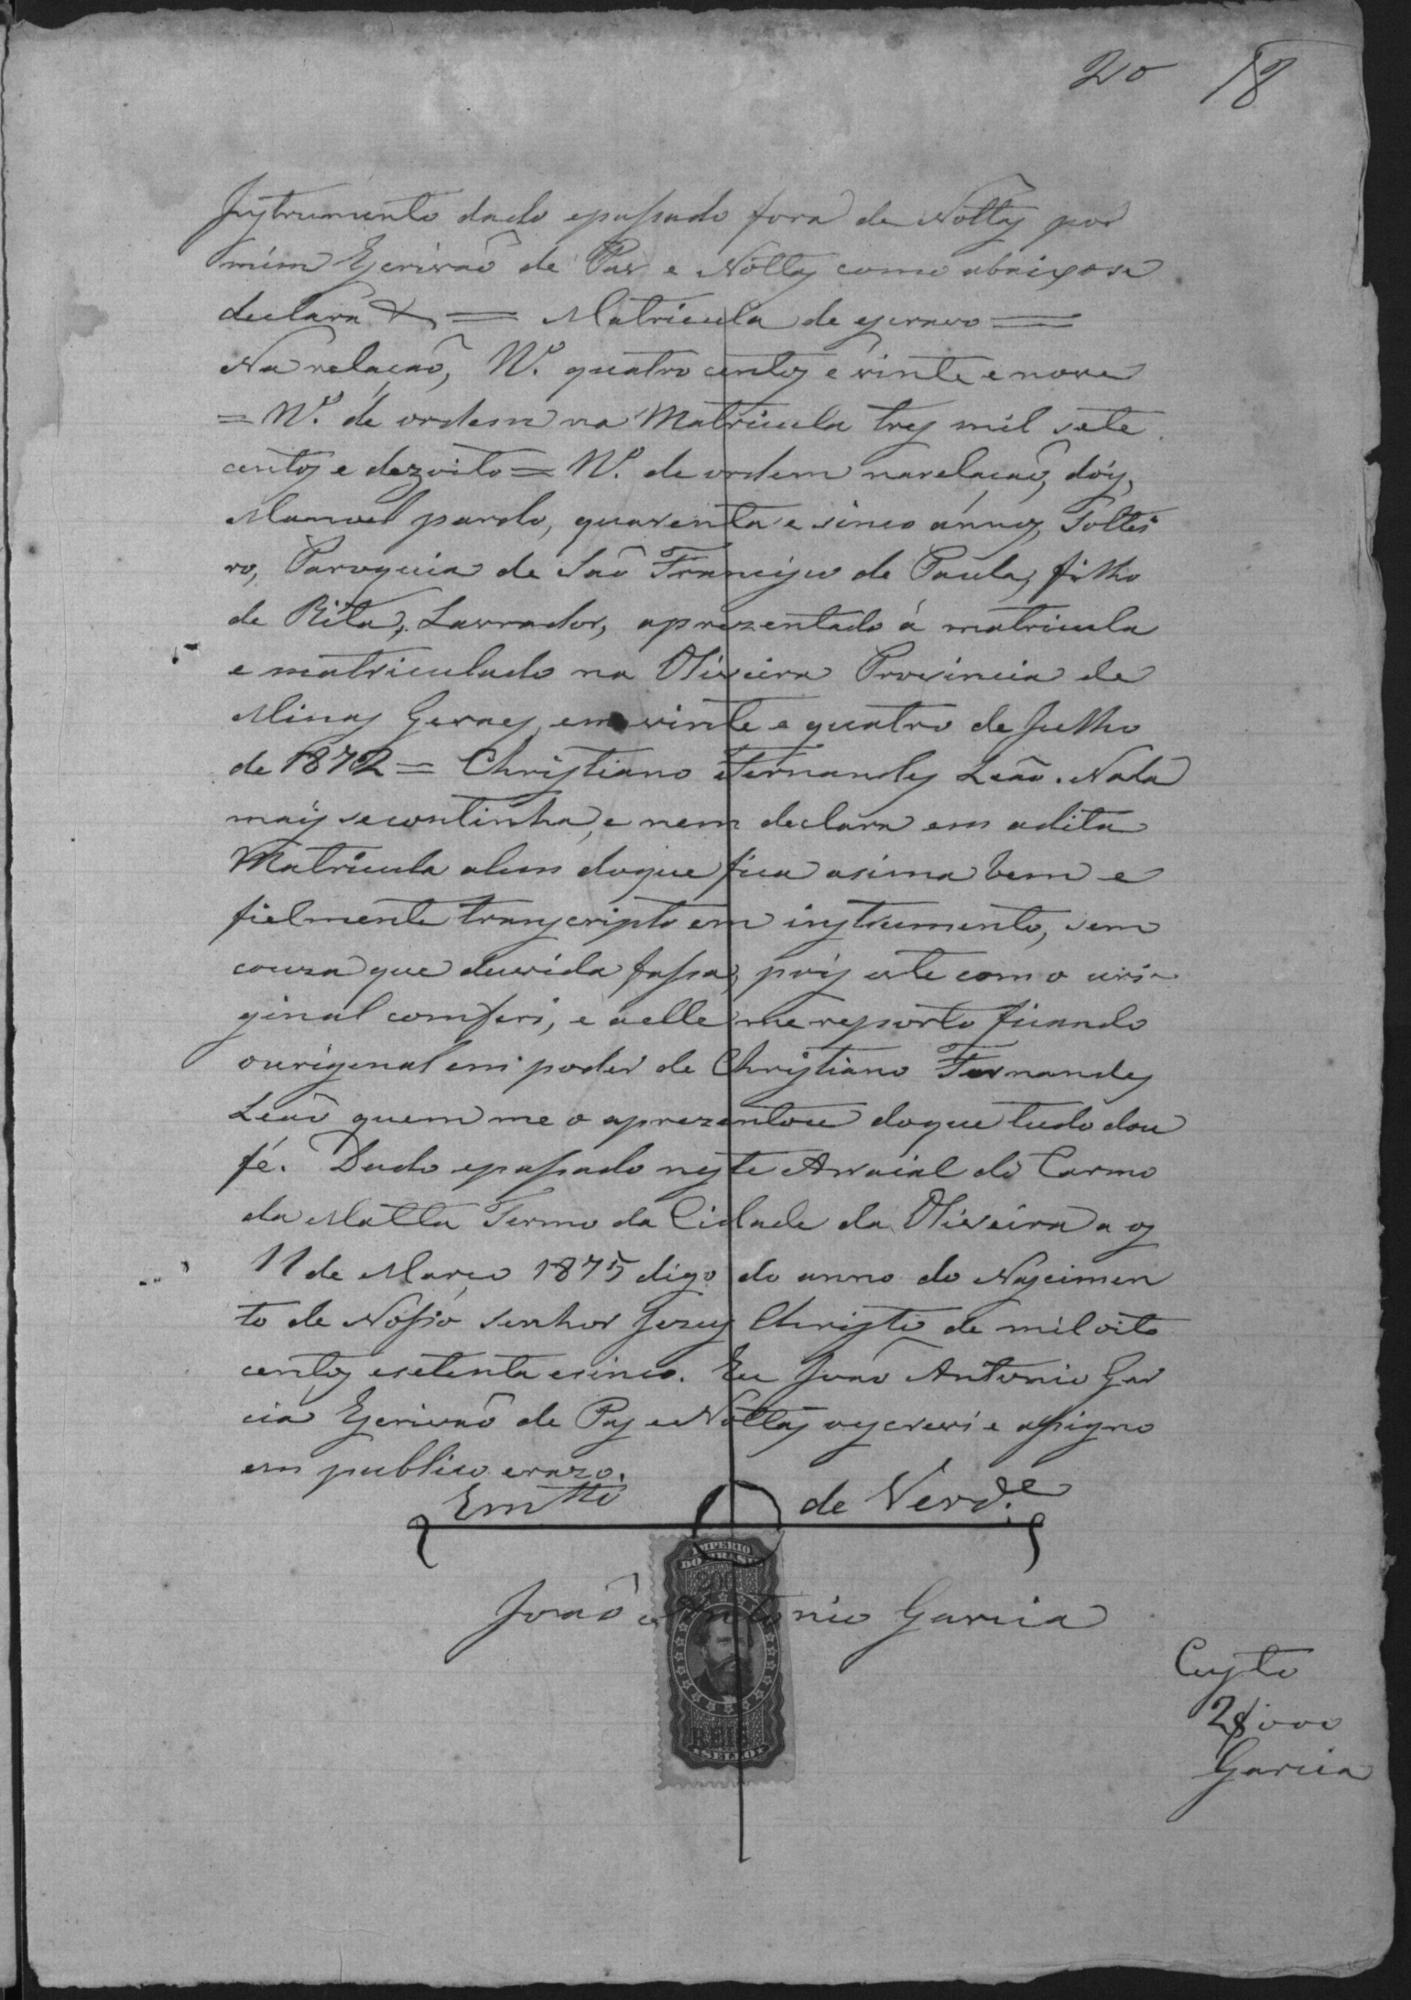 20 18
Instrumento dado epassado fora de Nottas por
mim Escrivaõ de Paz e Nottas como abaixo se
declara & = Matricula de escravo =
Na relacaõ, Nº. quatro centos e vinte e nove
= Nº. de ordem na Matricula tres mil sete
centos e dezoito = Nº. de ordem na relacaõ, dois,
Manoel pardo, quarenta e sinco annos, Soltei
ro, Paroquia de Saõ Francisco de Paula, filho
de Rita, Lavrador, aprezentado á matricula
e matriculado na Oliveira Provincia de
Minas Geraes, em vinte e quatro de Julho
de 1872 = Christiano Fernandes Leaõ. Nada
mais secontinha, e nem declara em adita
Matricula alem doque fica asima bem e
fielmente transcripto em instrumento, sem
couza que duvida fassa, pois este com o uri-
ginal comferi, e aelle me reporto ficando
ouriginal em poder de Christiano Fernandes
Leaõ quem me o aprezentou doque tudo dou
fé. Dado epassado neste Arraial do Carmo
da Matta Termo da Cidade da Oliveira a os
11 de Março 1875 digo do anno do Nascimen
to de Nosso senhor Jezus Christo de mil oito
centos esetenta esinco. Eu Joaõ Antonio Gar
cia Escrivaõ de Pas e Nottas oyscrevi e assigno
em publico erazo.
Em tto de Verd.e
IMPERIO
DO BRASIL
200
Joaõ Antonio Garcia
REIS
SELLO
Custo
2$000
Garcia